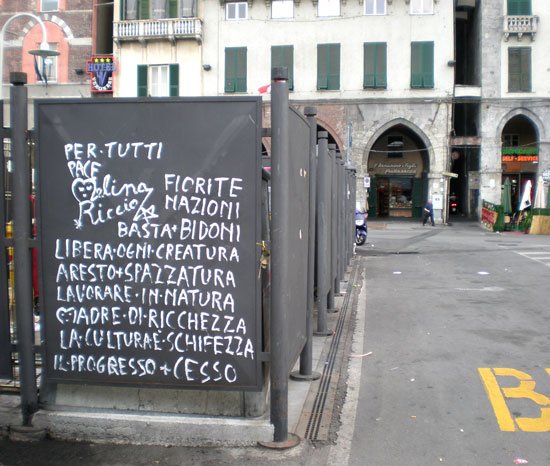 PER·TUTTI
PACE
Melina
Riccio
FIORITE
NAZIONI
BASTA+BIDONI
LIBERA·OGNI·CREATURA
ARESTO+SPAZZATURA
LAVORARE·IN·NATURA
MADRE·DI·RICCHEZZA
LA·CULTURA·E·SCHIFEZZA
IL·PROGRESSO+CESSO
HOTEL
V
SELF-SERVICE